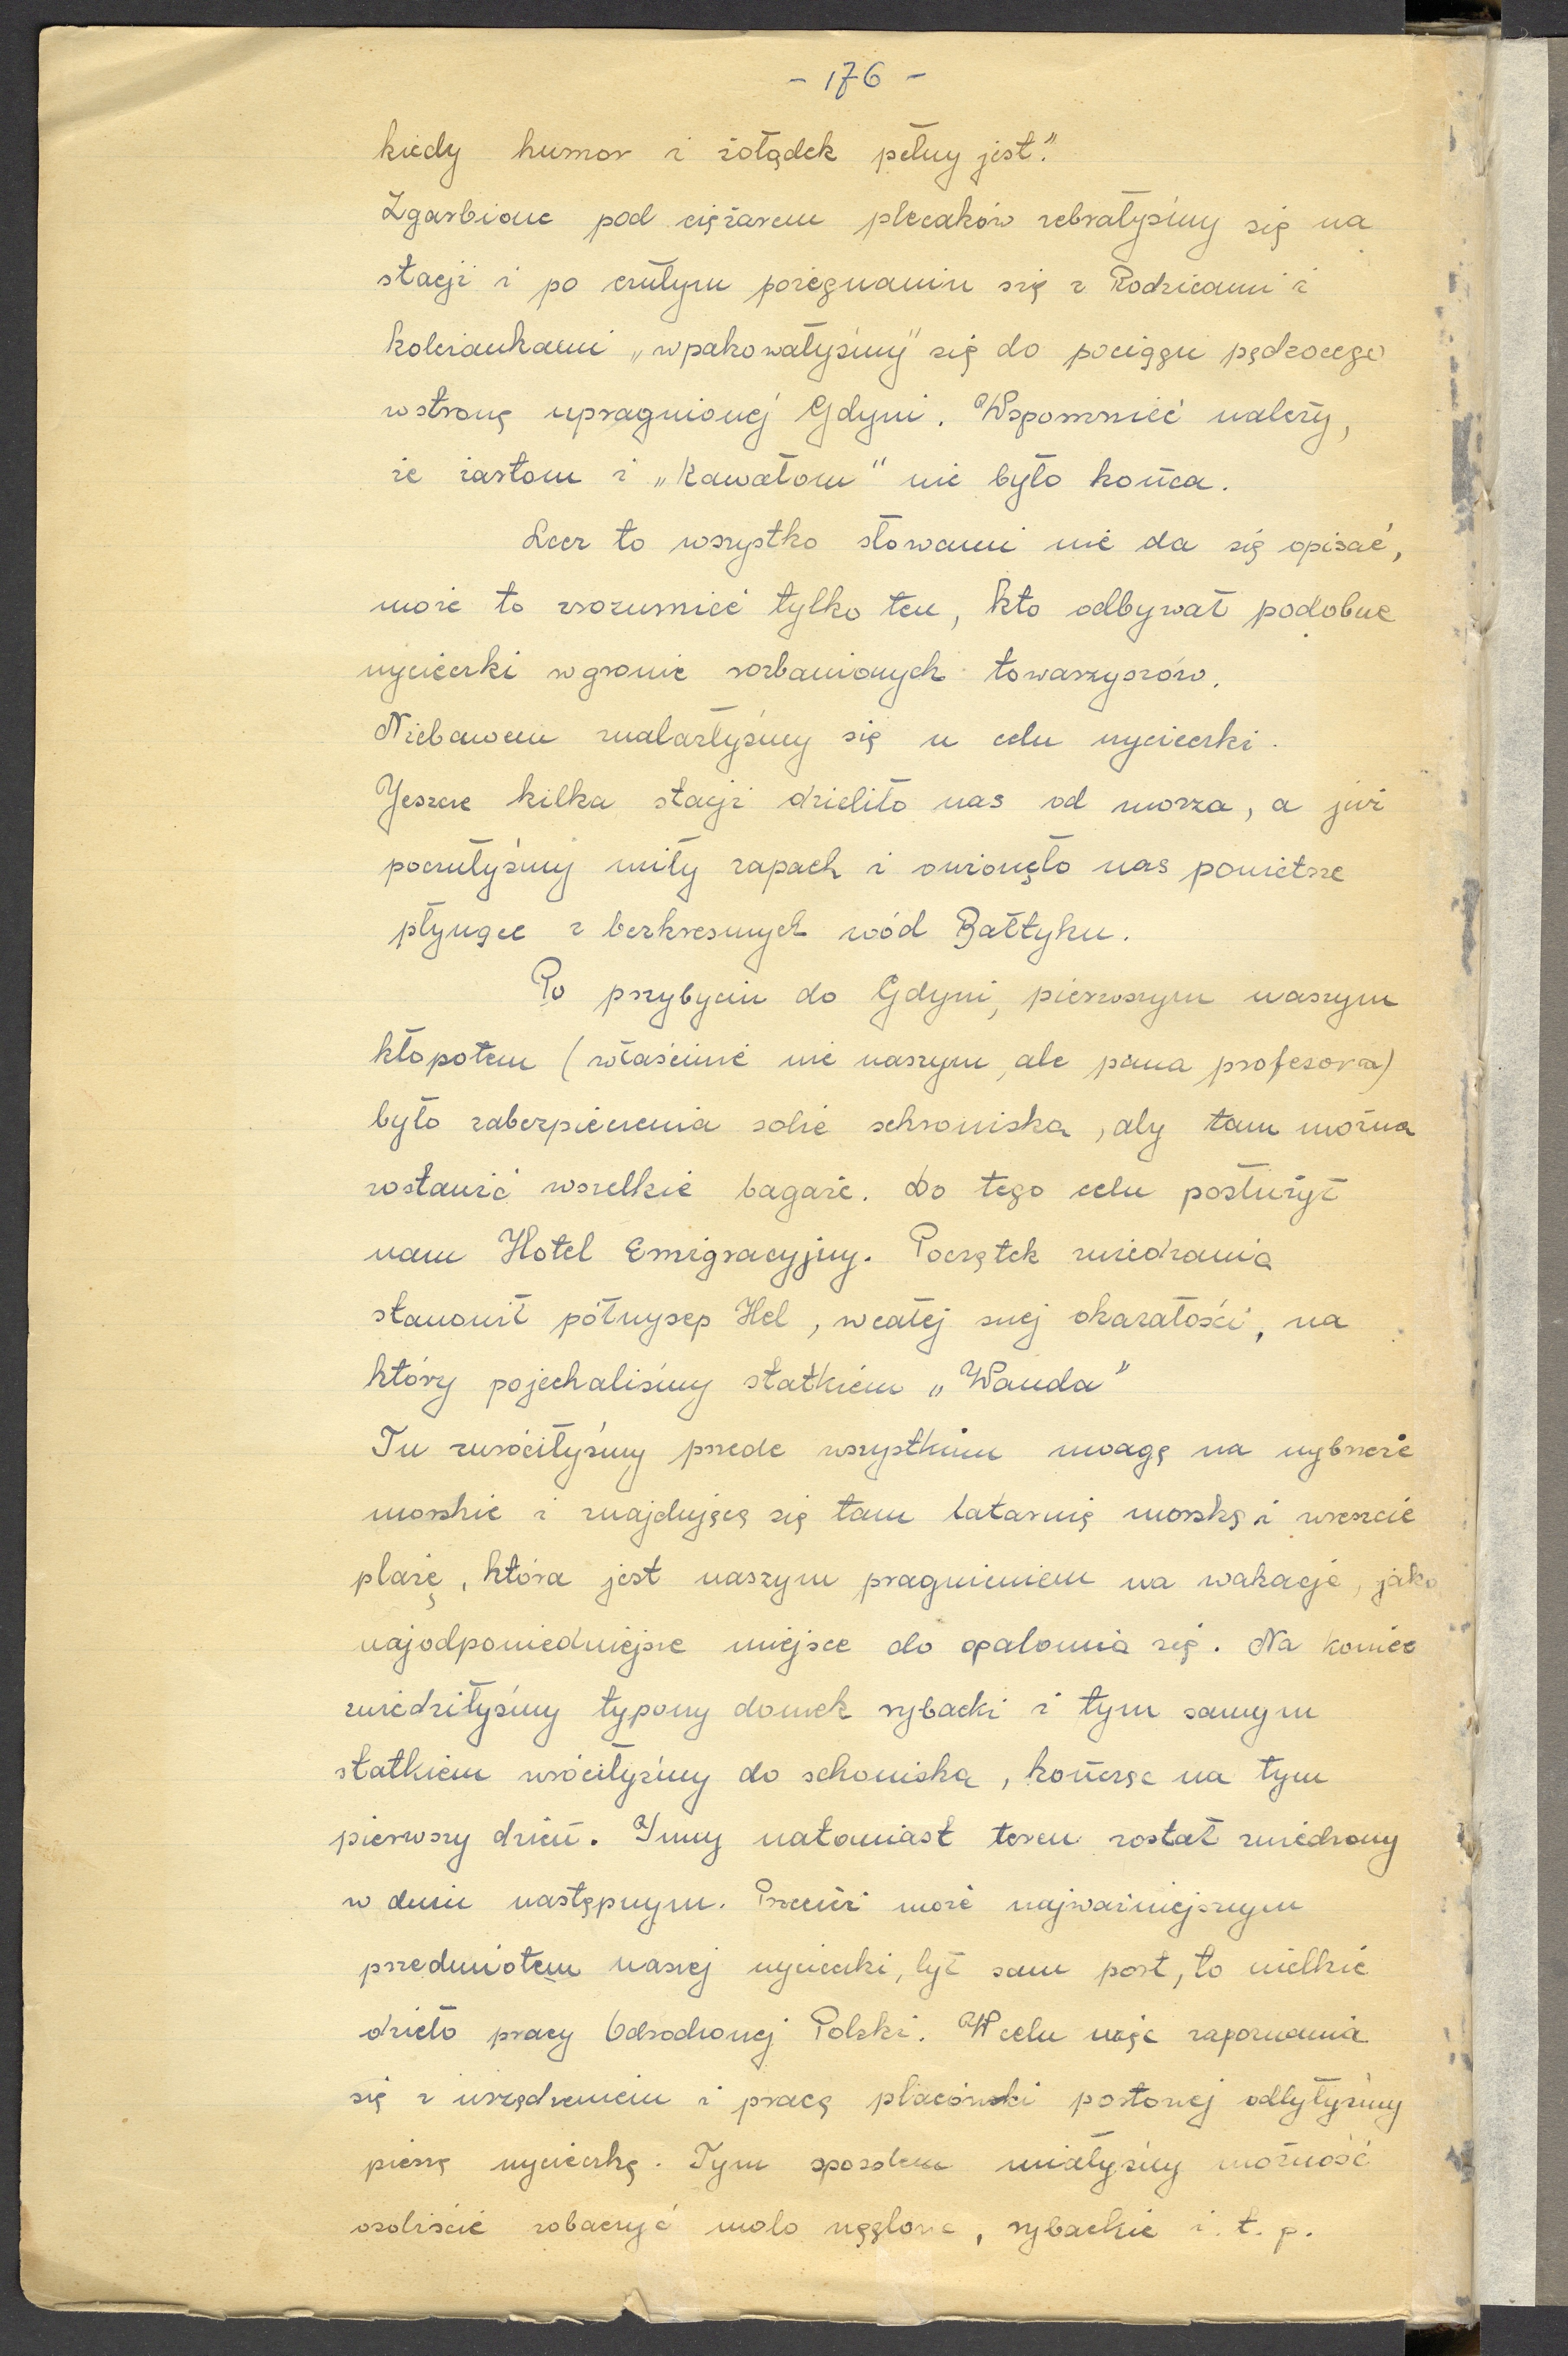 - 176 -
kiedy humor i żołądek pełny jest."
Zgarbione pod ciężarem plecaków zebrałyśmy się na
stacji i po czułym pożegnaniu się z Rodzicami i
koleżankami „wpakowałyśmy" się do pociągu pędzocego
wstronę upragnionej Gdyni. Wspomnieć należy,
że żartom i „kawałom" nie było końca.
Lecz to wszystko słowami nie da się opisać,
może to zrozumieć tylko ten, kto odbywał podobne
wycieczki wgronie rozbawionych towarzyszów.
Niebawem znalazłyśmy się u celu wycieczki.
Jeszcze kilka stacji dzieliło nas od morza, a już
poczułyśmy miły zapach i owionęło nas powietrze
płynące z bezkresnych wód Bałtyku.
Po przybyciu do Gdyni, pierwszym naszym
kłopotem (właściwie nie naszym, ale pana profesora)
było zabezpieczenia sobie schroniska, aby tam można
zostawić wszelkie bagaże. Do tego celu posłużył
nam Hotel Emigracyjny. Początek zwiedzania
stanowił półwysep Hel, wcałej swej okazałości, na
który pojechaliśmy statkiem „Wanda"
Tu zwróciłyśmy przede wszystkim uwagę na wybrzeże
morskie i znajdującą się tam latarnię morską i wreszcie
plażę, która jest naszym pragnieniem na wakacje, jako
najodpowiedniejsze miejsce do opalania się. Na koniec
zwiedziłyśmy typowy domek rybacki i tym samym
statkiem wróciłyśmy do schoniska, kończąc na tym
pierwszy dzień. Inny natomiast teren został zwiedzony
w dniu następnym. Przecież może najważniejszym
przedmiotem naszej wycieczki, był sam port, to wielkie
dzieło pracy Odrodzonej Polski. W celu więc zapoznania
się z urządzeniem i pracą placówki portowej odbyłyśmy
pieszą wycieczkę. Tym sposobem miałyśmy możność
osobiście zobaczyć molo węglowe, rybackie i.t.p.